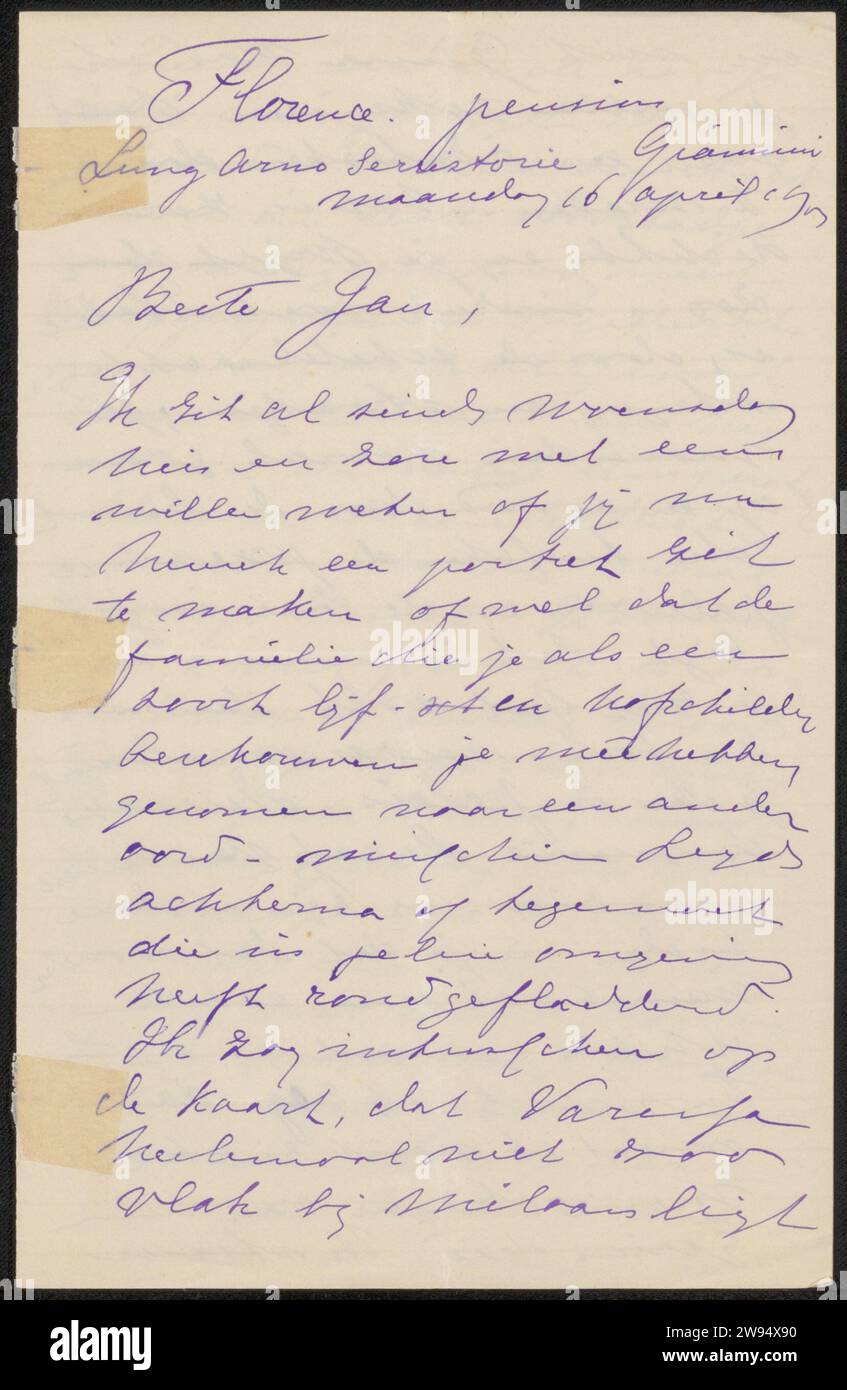 Florence. pension
Lung Arno Serristorie Giannini
maandag 16 april
Beste Jan,
Ik zit al sinds woensdag
hier en zou wel eens
willen weten of jij nu
een portret zit
te maken of wel dat de
familie die je als een
soort lijf- en hofschilder
beschouwen je mee hebben
genomen naar een ander
oord - misschien
achterna of tegemoet
die in jelui omgeving
heeft rondgefladderd.
Ik zag intusschen op
de kaart, dat
heelemaal niet zoo
vlak bij Milaan ligt
alamy
alamy
alamy
alamy
Image ID: 2W94X90
www.alamy.com